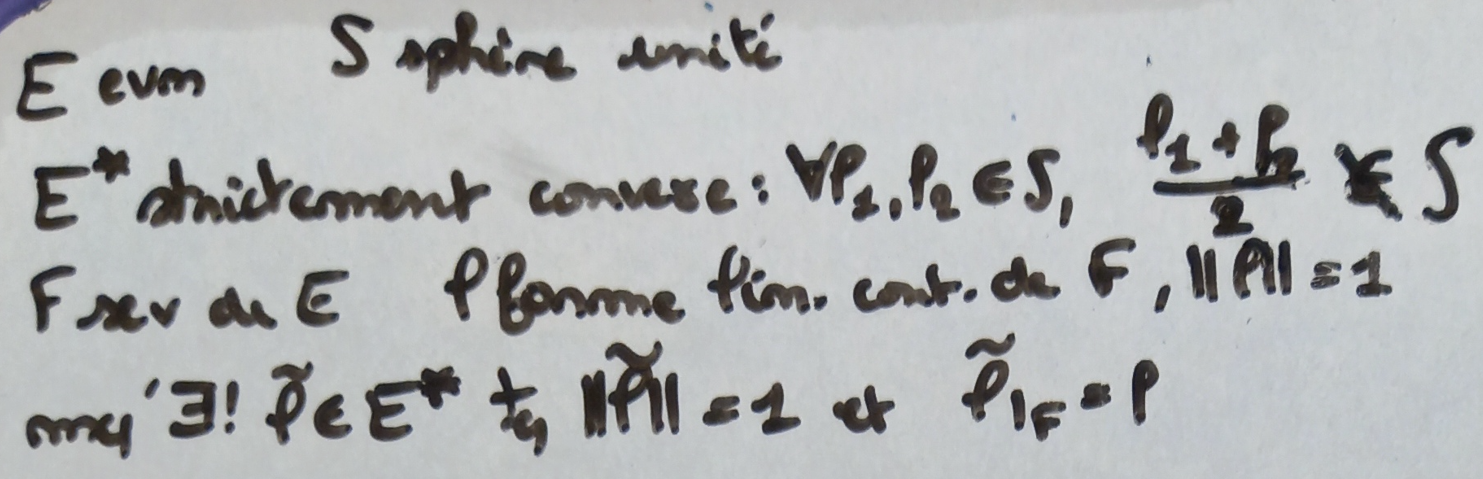 E evm S sphère unité
E* strictement convexe : ∀l₁, l₂ ∈ S, (l₁ + l₂)/2 ∉ S
F sev de E l forme lin. cont. de F, ||l|| = 1
mq ∃! l̃ ∈ E* tq ||l̃|| = 1 et l̃|F = l